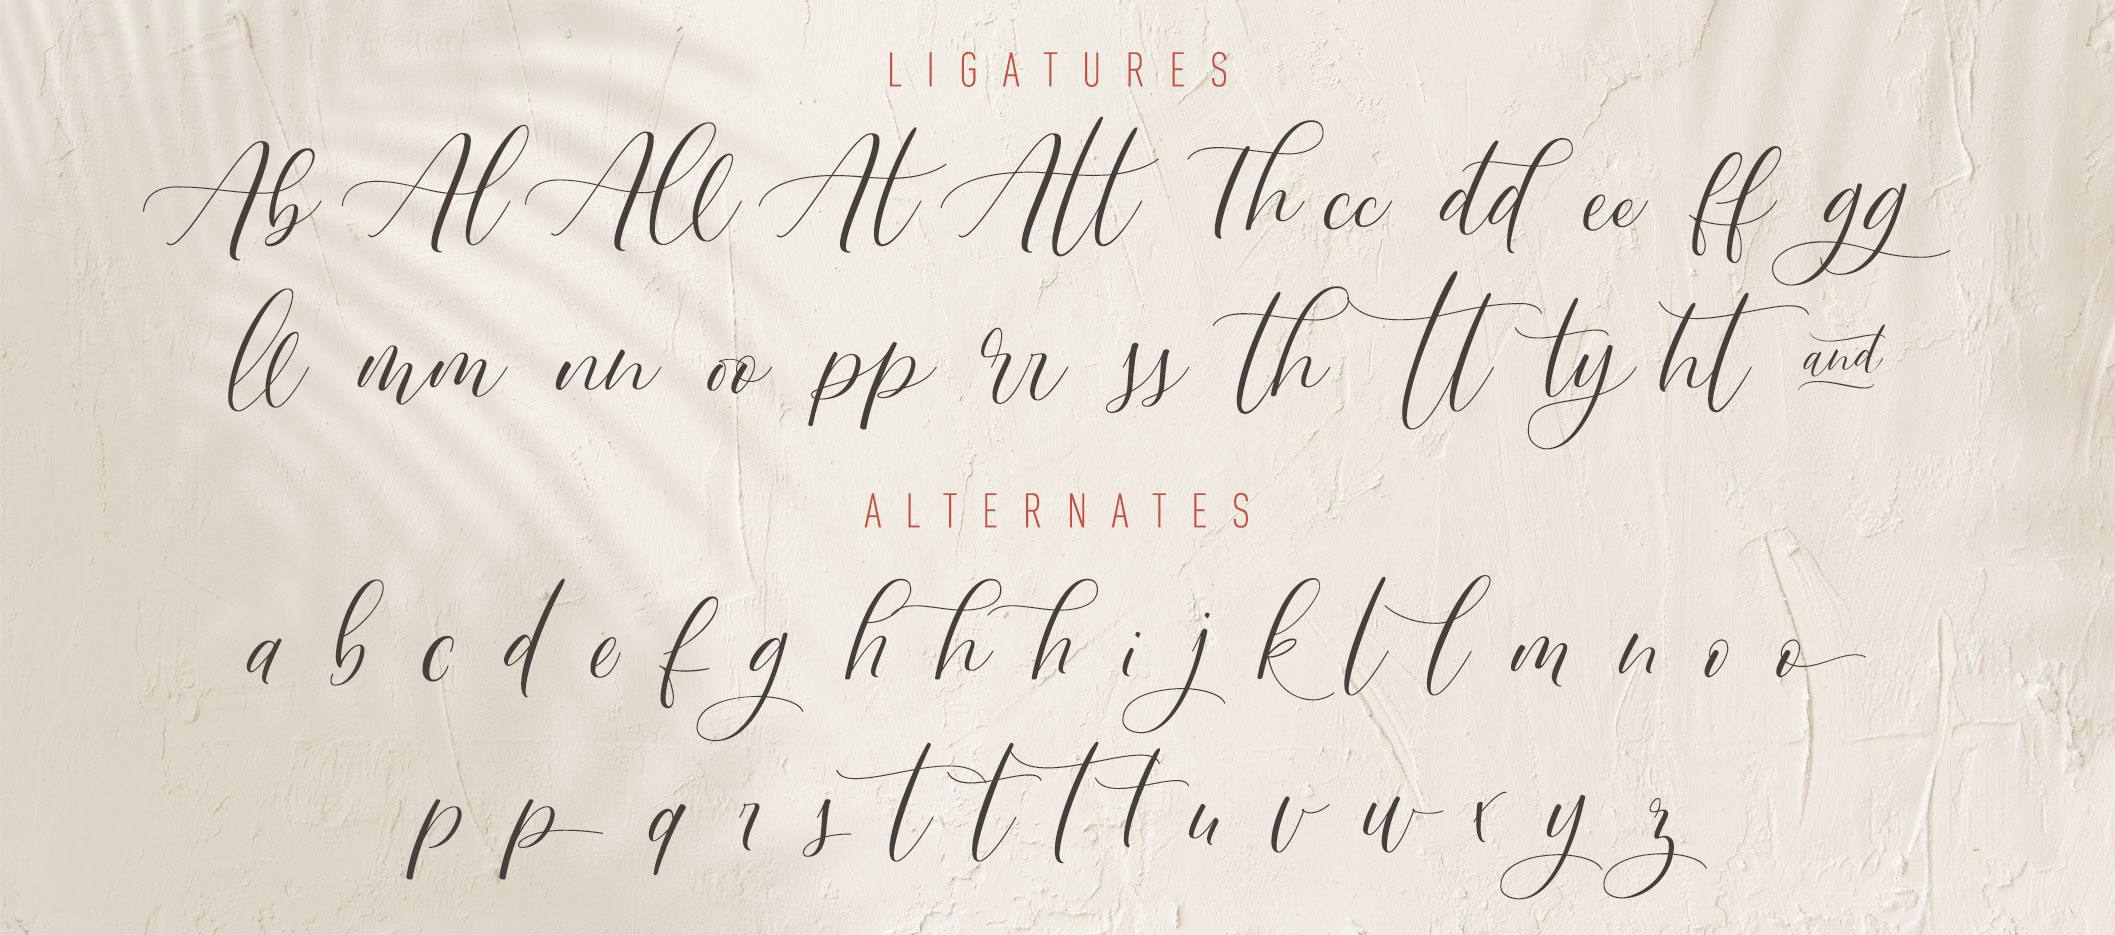 LIGATURES
Ab Al All At Att Th cc dd ee ff gg
ll mm nn oo pp rr ss th tt ty ht and
ALTERNATES
a b c d e f g h h h i j k l l m n o o
p p q r s t t t t u v w x y z